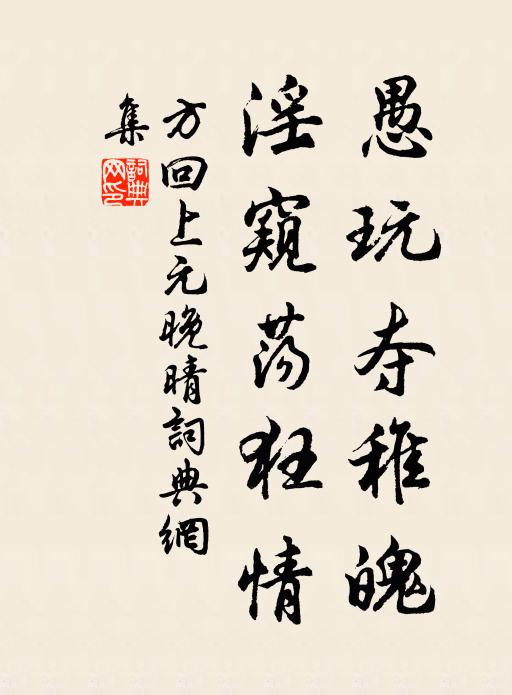 愚玩夺稚魄
淫窥荡狂情
方回上元晚晴詞典網
集
詞典
网印